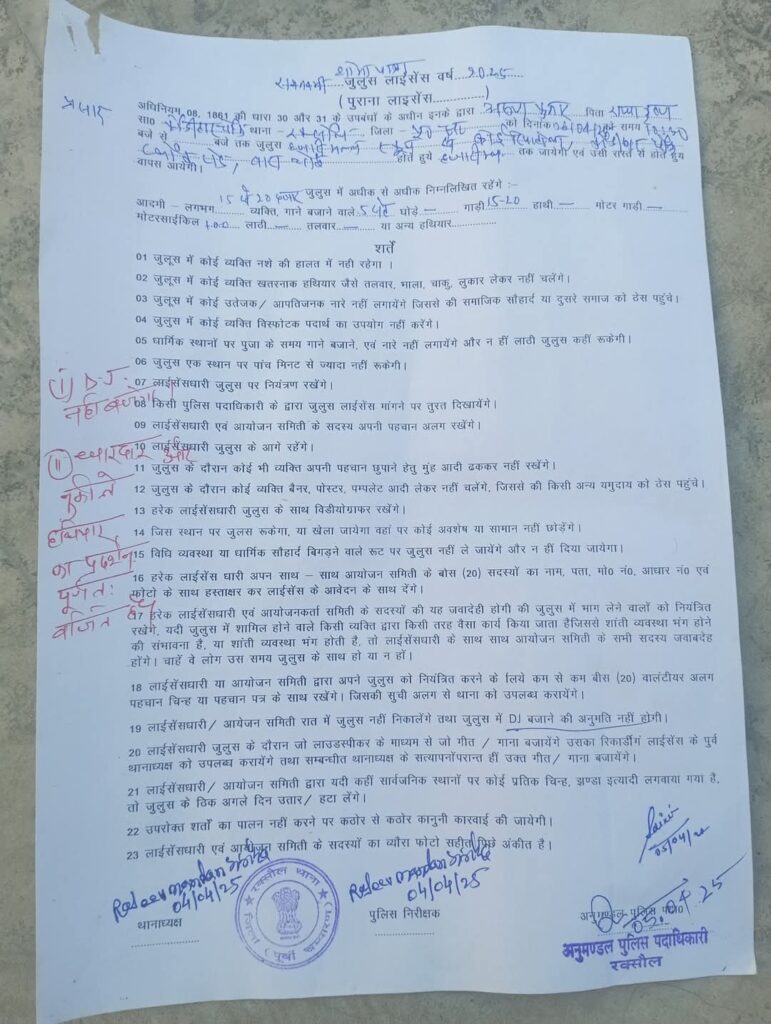 शोभा यात्रा
रामनवमी जुलुस लाईसेंस वर्ष....2025
(पुराना लाईसेंस..............)
अधिनियम 08, 1861 की धारा 30 और 31 के उपबंधों के अधीन इनके द्वारा कुमार पिता
सा० थाना - रक्सौल - जिला - को दिनांक समय
बजे से .......... बजे तक जुलुस
होते हुये तक जायेगी एवं उसी रास्ते से होते हुय
वापस आयेगी।
आदमी - लगभग 15 से 20 हजार जुलुस में अधीक से अधीक निम्नलिखित रहेंगे :-
व्यक्ति, गाने बजाने वाले घोड़े - गाड़ी 15-20 हाथी.- मोटर गाड़ी -
मोटरसाईकिल 100 लाठी - तलवार - या अन्य हथियार
शर्ते
01 जुलूस में कोई व्यक्ति नशे की हालत में नही रहेगा ।
02 जुलुस में कोई व्यक्ति खतरनाक हथियार जैसे तलवार, भाला, चाकु, लुकार लेकर नहीं चलेंगे।
03 जुलूस में कोई उतेजक/ आपतिजनक नारे नहीं लगायेंगे जिससे की समाजिक सौहार्द या दुसरे समाज को ठेस पहुंचे।
04 जुलूस में कोई व्यक्ति विस्फोटक पदार्थ का उपयोग नहीं करेंगे।
05 धार्मिक स्थानों पर पुजा के समय गाने बजाने, एवं नारे नहीं लगायेंगे और न हीं लाठी जुलुस कहीं रूकेगी।
06 जुलुस एक स्थान पर पांच मिनट से ज्यादा नहीं रूकेगी।
07 लाईसेंसधारी जुलुस पर नियंत्रण रखेंगे।
08 किसी पुलिस पदाधिकारी के द्वारा जुलुस लाईसेंस मांगने पर तुरत दिखायेंगे।
09 लाईसेंसधारी एवं आयोजन समिती के सदस्य अपनी पहचान अलग रखेंगे।
10 लाईसेंसधारी जुलुस के आगे रहेंगे।
11 जुलुस के दौरान कोई भी व्यक्ति अपनी पहचान छुपाने हेतु मुंह आदी ढककर नहीं रखेंगे।
12 जुलुस के दौरान कोई व्यक्ति बैनर, पोस्टर, पम्पलेट आदी लेकर नहीं चलेंगे, जिससे की किसी अन्य यमुदाय को ठेस पहुंचे।
13 हरेक लाईसेंसधारी जुलुस के साथ विडीयोग्राफर रखेंगे।
14 जिस स्थान पर जुलस रूकेगा, या खेला जायेगा वहां पर कोई अवशेष या सामान नहीं छोड़ेंगे।
15 विधि व्यवस्था या धार्मिक सौहार्द बिगड़ने वाले रूट पर जुलुस नहीं ले जायेंगे और न हीं दिया जायेगा।
16 हरेक लाईसेंस धारी अपन साथ - साथ आयोजन समिती के बोस (20) सदस्यों का नाम, पता, मो० नं०, आधार नं० एवं
फोटो के साथ हस्ताक्षर कर लाईसेंस के आवेदन के साथ देंगे।
17 हरेक लाईसेंसधारी एवं आयोजनकर्ता समिती के सदस्यों की यह जवादेही होगी की जुलुस में भाग लेने वालों को नियंत्रित
रखेंगे, यदी जुलुस में शामिल होने वाले किसी व्यक्ति द्वारा किसी तरह वैसा कार्य किया जाता हैजिससे शांती व्यवस्था भंग होने
की संभावना है, या शांती व्यवस्था भंग होती है, तो लाईसेंसधारी के साथ साथ आयोजन समिती के सभी सदस्य जवाबदेह
होंगे। चाहें वे लोग उस समय जुलुस के साथ हो या न हों।
18 लाईसेंसधारी या आयोजन समिती द्वारा अपने जुलुस को नियंत्रित करने के लिये कम से कम बीस (20) वालंटीयर अलग
पहचान चिन्ह या पहचान पत्र के साथ रखेंगे। जिसकी सुची अलग से थाना को उपलब्ध करायेंगे।
19 लाईसेंसधारी/ आयेजन समिती रात में जुलुस नहीं निकालेंगे तथा जुलुस में DJ बजाने की अनुमति नहीं होगी।
20 लाईसेंसधारी जुलुस के दौरान जो लाउडस्पीकर के माध्यम से जो गीत/ गाना बजायेंगे उसका रिकार्डीग लाईसेंस के पुर्व
थानाध्यक्ष को उपलब्ध करायेंगे तथा सम्बन्धीत थानाध्यक्ष के सत्यापनोंपरान्त हीं उक्त गीत/ गाना बजायेंगे।
21 लाईसेंसधारी/ आयोजन समिती द्वारा यदी कहीं सार्वजनिक स्थानों पर कोई प्रतिक चिन्ह, झण्डा इत्यादी लगवाया गया है,
तो जुलुस के ठिक अगले दिन उतार/ हटा लेंगे।
22 उपरोक्त शर्तो का पालन नहीं करने पर कठोर से कठोर कानुनी कारवाई की जायेगी।
23 लाईसेंसधारी एवं आयोजन समिती के सदस्यों का ब्यौरा फोटो सहीत पिछे अंकीत है।
(i) D.J.
नहीं बजेगा
(ii) धारदार और
नुकीले
हथियार
का प्रदर्शन
पूर्णतः
वर्जित है
04/04/25
थानाध्यक्ष
रक्सौल थाना
जिला (पूर्वी चम्पारण)
04/04/25
पुलिस निरीक्षक
05/04/25
05.04.25
अनुमण्डल पुलिस पदा०
अनुमण्डल पुलिस पदाधिकारी
रक्सौल